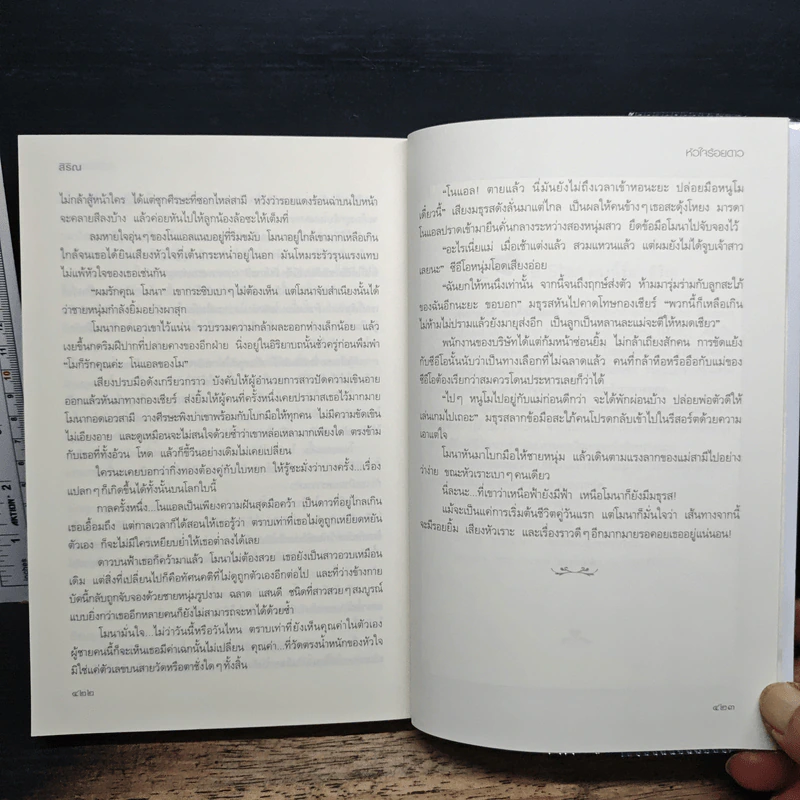 สิริณ
ไม่กล้าสู้หน้าใคร ได้แต่ซุกศีรษะที่ซอกไหล่สามี หวังว่ารอยแดงร้อนฉ่าบนใบหน้า
จะคลายสีลงบ้าง แล้วค่อยหันไปให้ลูกน้องล้อซะให้เต็มที่
ลมหายใจอุ่นๆของโนแอลแนบอยู่ที่ริมขมับ โมนาอยู่ใกล้เขามากเหลือเกิน
ใกล้จนเธอได้ยินเสียงหัวใจที่เต้นกระหน่ำอยู่ในอก มันโหมระรัวรุนแรงแทบ
ไม่แพ้หัวใจของเธอเช่นกัน
“ผมรักคุณ โมนา” เขากระซิบเบาๆไม่ต้องเห็น แต่โมนาจับสำเนียงนั้นได้
ว่าชายหนุ่มกำลังยิ้มอย่างผาสุก
โมนากอดเอวเขาไว้แน่น รวบรวมความกล้าผละออกห่างเล็กน้อย แล้ว
เงยขึ้นกดริมฝีปากที่ปลายคางของอีกฝ่าย นิ่งอยู่ในอิริยาบถนั้นชั่วครู่ก่อนพึมพำ
“โมก็รักคุณค่ะ โนแอลของโม”
เสียงปรบมือดังเกรียวกราว บังคับให้ผู้อำนวยการสาวปัดความเขินอาย
ออกแล้วหันมาทางกองเชียร์ ส่งยิ้มให้ผู้คนที่ครั้งหนึ่งเคยปรามาสเธอไว้มากมาย
โมนากอดเอวสามี วางศีรษะพิงบ่าเขาพร้อมกับโบกมือให้ทุกคน ไม่มีความขัดเขิน
ไม่เอียงอาย และดูเหมือนจะไม่สนใจด้วยซ้ำว่าเขาหล่อเหลามากเพียงใด ตรงข้าม
กับเธอที่ทั้งอ้วน โหด แล้วก็ขี้วีนอย่างเดิมไม่เคยเปลี่ยน
ใครนะเคยบอกว่ากิ่งทองต้องคู่กับใบหยก ให้รู้ซะมั่งว่าบางครั้ง...เรื่อง
แปลกๆก็เกิดขึ้นได้ทั้งนั้นบนโลกใบนี้
กาลครั้งหนึ่ง...โนแอลเป็นเพียงความฝันสุดมือคว้า เป็นดาวที่อยู่ไกลเกิน
เธอเอื้อมถึง แต่กาลเวลาก็ได้สอนให้เธอรู้ว่า ตราบเท่าที่เธอไม่ดูถูกเหยียดหยัน
ตัวเอง ก็จะไม่มีใครเหยียบย่ำให้เธอต่ำลงได้เลย
ดาวบนฟ้าเธอก็คว้ามาแล้ว โมนาไม่ต้องสวย เธอยังเป็นสาวอวบเหมือน
เดิม แต่สิ่งที่เปลี่ยนไปก็คือทัศนคติที่ไม่ดูถูกตัวเองอีกต่อไป และที่ว่างข้างกาย
บัดนี้กลับถูกจับจองด้วยชายหนุ่มรูปงาม ฉลาด แสนดี ชนิดที่สาวสวยๆสมบูรณ์
แบบยิ่งกว่าเธออีกหลายคนก็ยังไม่สามารถจะหาได้ด้วยซ้ำ
โมนามั่นใจ...ไม่ว่าวันนี้หรือวันไหน ตราบเท่าที่ยังเห็นคุณค่าในตัวเอง
ผู้ชายคนนี้ก็จะเห็นเธอมีค่าเฉกนั้นไม่เปลี่ยน คุณค่า...ที่วัดตรงน้ำหนักของหัวใจ
มิใช่แค่ตัวเลขบนสายวัดหรือตาชั่งใดๆทั้งสิ้น
๔๒๒
หัวใจร้อยดาว
“โนแอล! ตายแล้ว นี่มันยังไม่ถึงเวลาเข้าหอนะยะ ปล่อยมือหนูโม
เดี๋ยวนี้” เสียงมธุรสดังลั่นมาแต่ไกล เป็นผลให้คนข้างๆเธอสะดุ้งโหยง มารดา
โนแอลปราดเข้ามายืนคั่นกลางระหว่างสองหนุ่มสาว ยึดข้อมือโมนาไปจับจองไว้
“อะไรเนี่ยแม่ เมื่อเช้าแต่งแล้ว สวมแหวนแล้ว แต่ผมยังไม่ได้จูบเจ้าสาว
เลยนะ” ซีอีโอหนุ่มโอดเสียงอ่อย
“ฉันยกให้หนึ่งเท่านั้น จากนี้จนถึงฤกษ์ส่งตัว ห้ามมารุ่มร่ามกับลูกสะใภ้
ของฉันอีกนะยะ ขอบอก” มธุรสหันไปคาดโทษกองเชียร์ “พวกนี้ก็เหลือเกิน
ไม่ห้ามไม่ปรามแล้วยังมายุส่งอีก เป็นลูกเป็นหลานละแม่จะตีให้หมดเชียว”
พนักงานของบริษัทได้แต่ก้มหน้าซ่อนยิ้ม ไม่กล้าเถียงสักคน การขัดแย้ง
กับซีอีโอนั้นนับว่าเป็นทางเลือกที่ไม่ฉลาดแล้ว คนที่กล้าหือหรืออือกับแม่ของ
ซีอีโอต้องเรียกว่าสมควรโดนประหารเลยก็ว่าได้
“ไปๆ หนูโมไปอยู่กับแม่ก่อนดีกว่า จะได้พักผ่อนบ้าง ปล่อยพ่อตัวดีให้
เล่นเกมไปเถอะ” มธุรสลากข้อมือสะใภ้คนโปรดกลับเข้าไปในรีสอร์ตด้วยความ
เอาแต่ใจ
โมนาหันมาโบกมือให้ชายหนุ่ม แล้วเดินตามแรงลากของแม่สามีไปอย่าง
ว่าง่าย ขณะหัวเราะเบาๆคนเดียว
นี่ละนะ...ที่เขาว่าเหนือฟ้ายังมีฟ้า เหนือโมนาก็ยังมีมธุรส!
แม้จะเป็นแค่การเริ่มต้นชีวิตคู่วันแรก แต่โมนาก็มั่นใจว่า เส้นทางจากนี้
จะมีรอยยิ้ม เสียงหัวเราะ และเรื่องราวดีๆอีกมากมายรอคอยเธออยู่แน่นอน!
๔๒๓